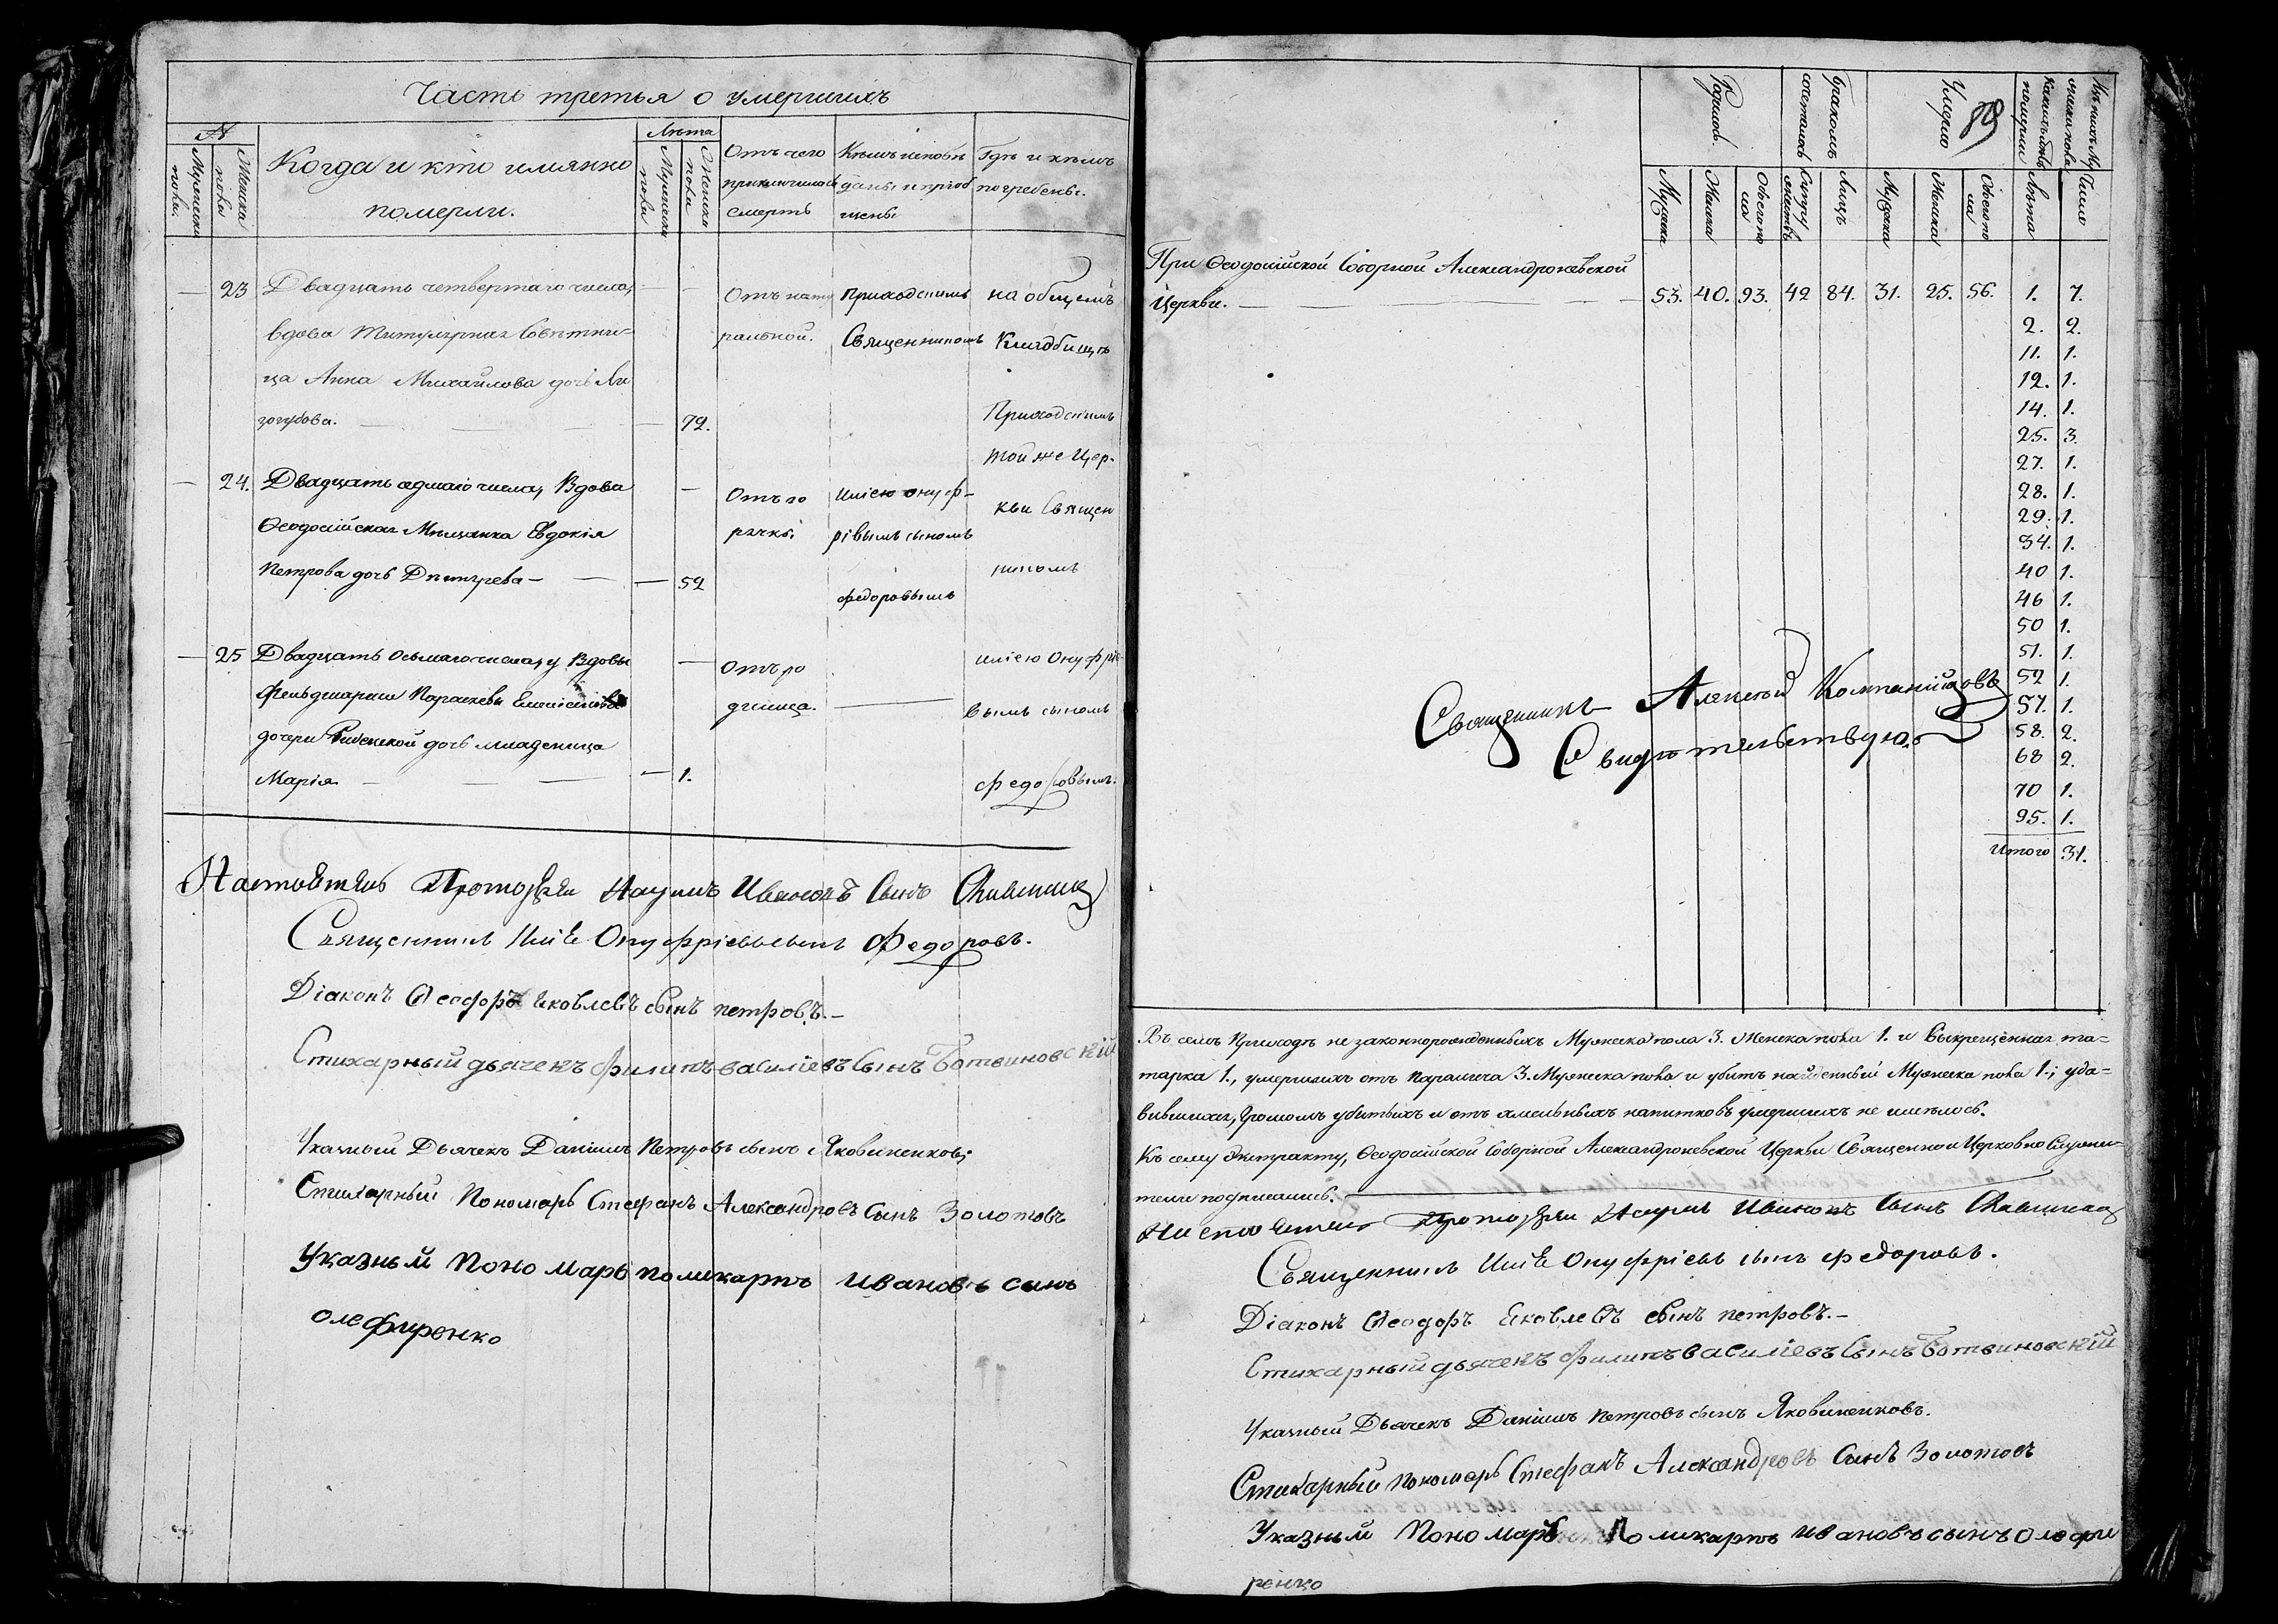 Часть третья о умершихъ
№
Мужеска пола.
Женска пола
Когда и кто имянно
померли.
Лѣта
Мужеска пола
Женска пола
Отъ чего
приключилась
смерть
Кѣмъ исповѣ
даны и приоб
щены
Гдѣ и кѣмъ
погребены.
23
Двадцать четвертаго числа,
вдова Титулярная Совѣтни=
ца Анна Михайлова дочь Ли
зогубова.
72.
Отъ нату
ральной.
Приходскимъ
Священникомъ
на общемъ
Кладбищѣ
Приходскимъ
той же Цер-
24.
Двадцать седмаго числа, Вдова
Ѳеодосійская Мѣщанка Евдокія
Петрова дочь
52
Отъ го
рячки.
Иліею Онуф-
ріевымъ сыномъ
Федоровымъ
кви Священ
никомъ
25
Двадцать осьмаго числа, у Вдовы
Фельдшарши Параскевы
дочери дочь младеница
Марія
1.
Отъ ро
димца.
Иліею Онуфріе-
вымъ сыномъ
Федоровымъ.
Настоятель Протоіерей Наумъ Ивановъ Сынъ
Священникъ Илія Онуфріевъ сынъ Федоровъ.
Діаконъ Ѳеодоръ Яковлевъ сынъ петровъ.-
Стихарный дьячекъ Филипъ василіевъ Сынъ Ботвиновскій
Указный Дьячекъ Даніилъ Петровъ сынъ Яковиненковъ
Стихарный Пономарь Стефанъ Александровъ Сынъ Золотовъ
Указный Пономарь поликарпъ ивановъ сынъ
олефиренко
89
Родилось.
Бракомъ
сочеталось
Умерло
Изъ нихъ Му
жеска пола
какихъ лѣтъ
померли
Мужска
Женска
Обоего по
ла
Супру
жествъ
Лицъ
Мужска
Женска
Обоего по
ла
Лѣта
Число
При Ѳеодосійской Соборной Александроневской
Церкви. 53. 40. 93. 42 84. 31. 25. 56. 1. 7.
2. 2.
11. 1.
12. 1.
14. 1.
25. 3.
27. 1.
28. 1.
29. 1.
34. 1.
40 1.
46 1.
50 1.
51. 1.
52 1.
57. 1.
58. 2.
68 2.
70 1.
95. 1.
Итого 31.
Священникъ Алексѣй Компанійцовъ
Свидѣтельствую
Въ семъ Приходѣ незаконнорожденныхъ Мужеска пола 3. Женска пола 1. и выкрещенная та=
тарка 1., умершихъ отъ паралича 3. Мужеска пола и убитъ найденный Мужеска пола 1.; уда=
вившихся, громомъ убитыхъ и отъ хмельныхъ напитковъ умершихъ не имѣлось.
Къ сему Экстракту, Ѳеодосійской Соборной Александроневской Церкви Священно и Церковно Служи-
тели подписались.
Настоятель Протоіерей Наумъ Ивановъ Сынъ
Священникъ Илія Онуфріевъ сынъ Федоровъ.
Діаконъ Ѳеодоръ Яковлевъ сынъ петровъ.-
Стихарный дьячекъ Филипъ василіевъ Сынъ Ботвиновскій
Указный Дьячекъ Даніилъ Петровъ сынъ Яковиненковъ.
Стихарный Пономарь Стефанъ Александровъ Сынъ Золотовъ
Указный Пономарь Поликарпъ ивановъ сынъ Олефи
ренко